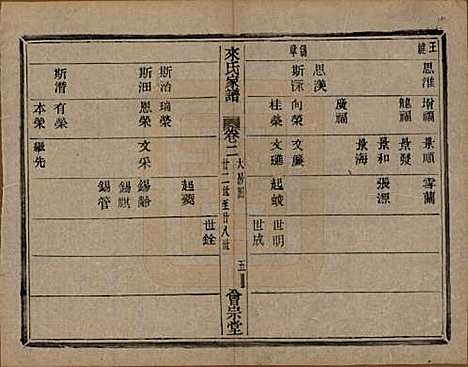 思淮
增福
景順
雪蘭
健福
景發
景和
張源
廣福
景海
思漢
斯深
向榮
文廉
桂榮
文璉
起蛟
世明
世成
來氏家譜
卷二
大房
廿二世至廿八世
五
會宗堂
斯治
瑞榮
起蔆
世銓
斯田
恩榮
文采
錫齡
錫麒
錫管
斯潛
有榮
本榮
繼先